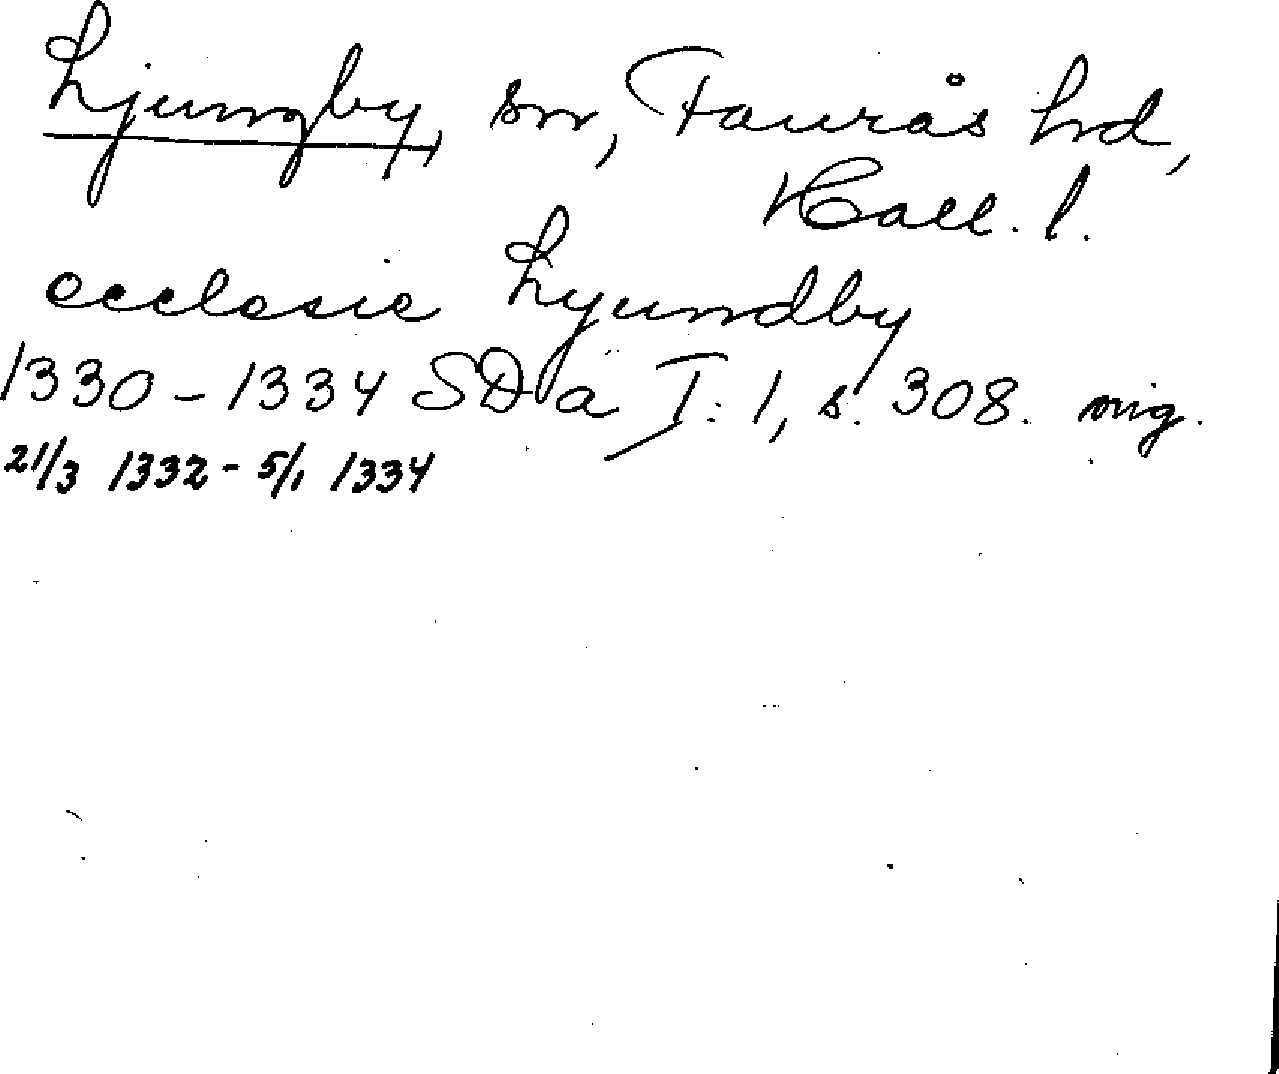 Ljungby, sn, Faurås hd,
Hall. l.
ecclesie Lyundby
1330-1334 SDa I:1, s. 308. mig.
21/3 1332-5/1 1334